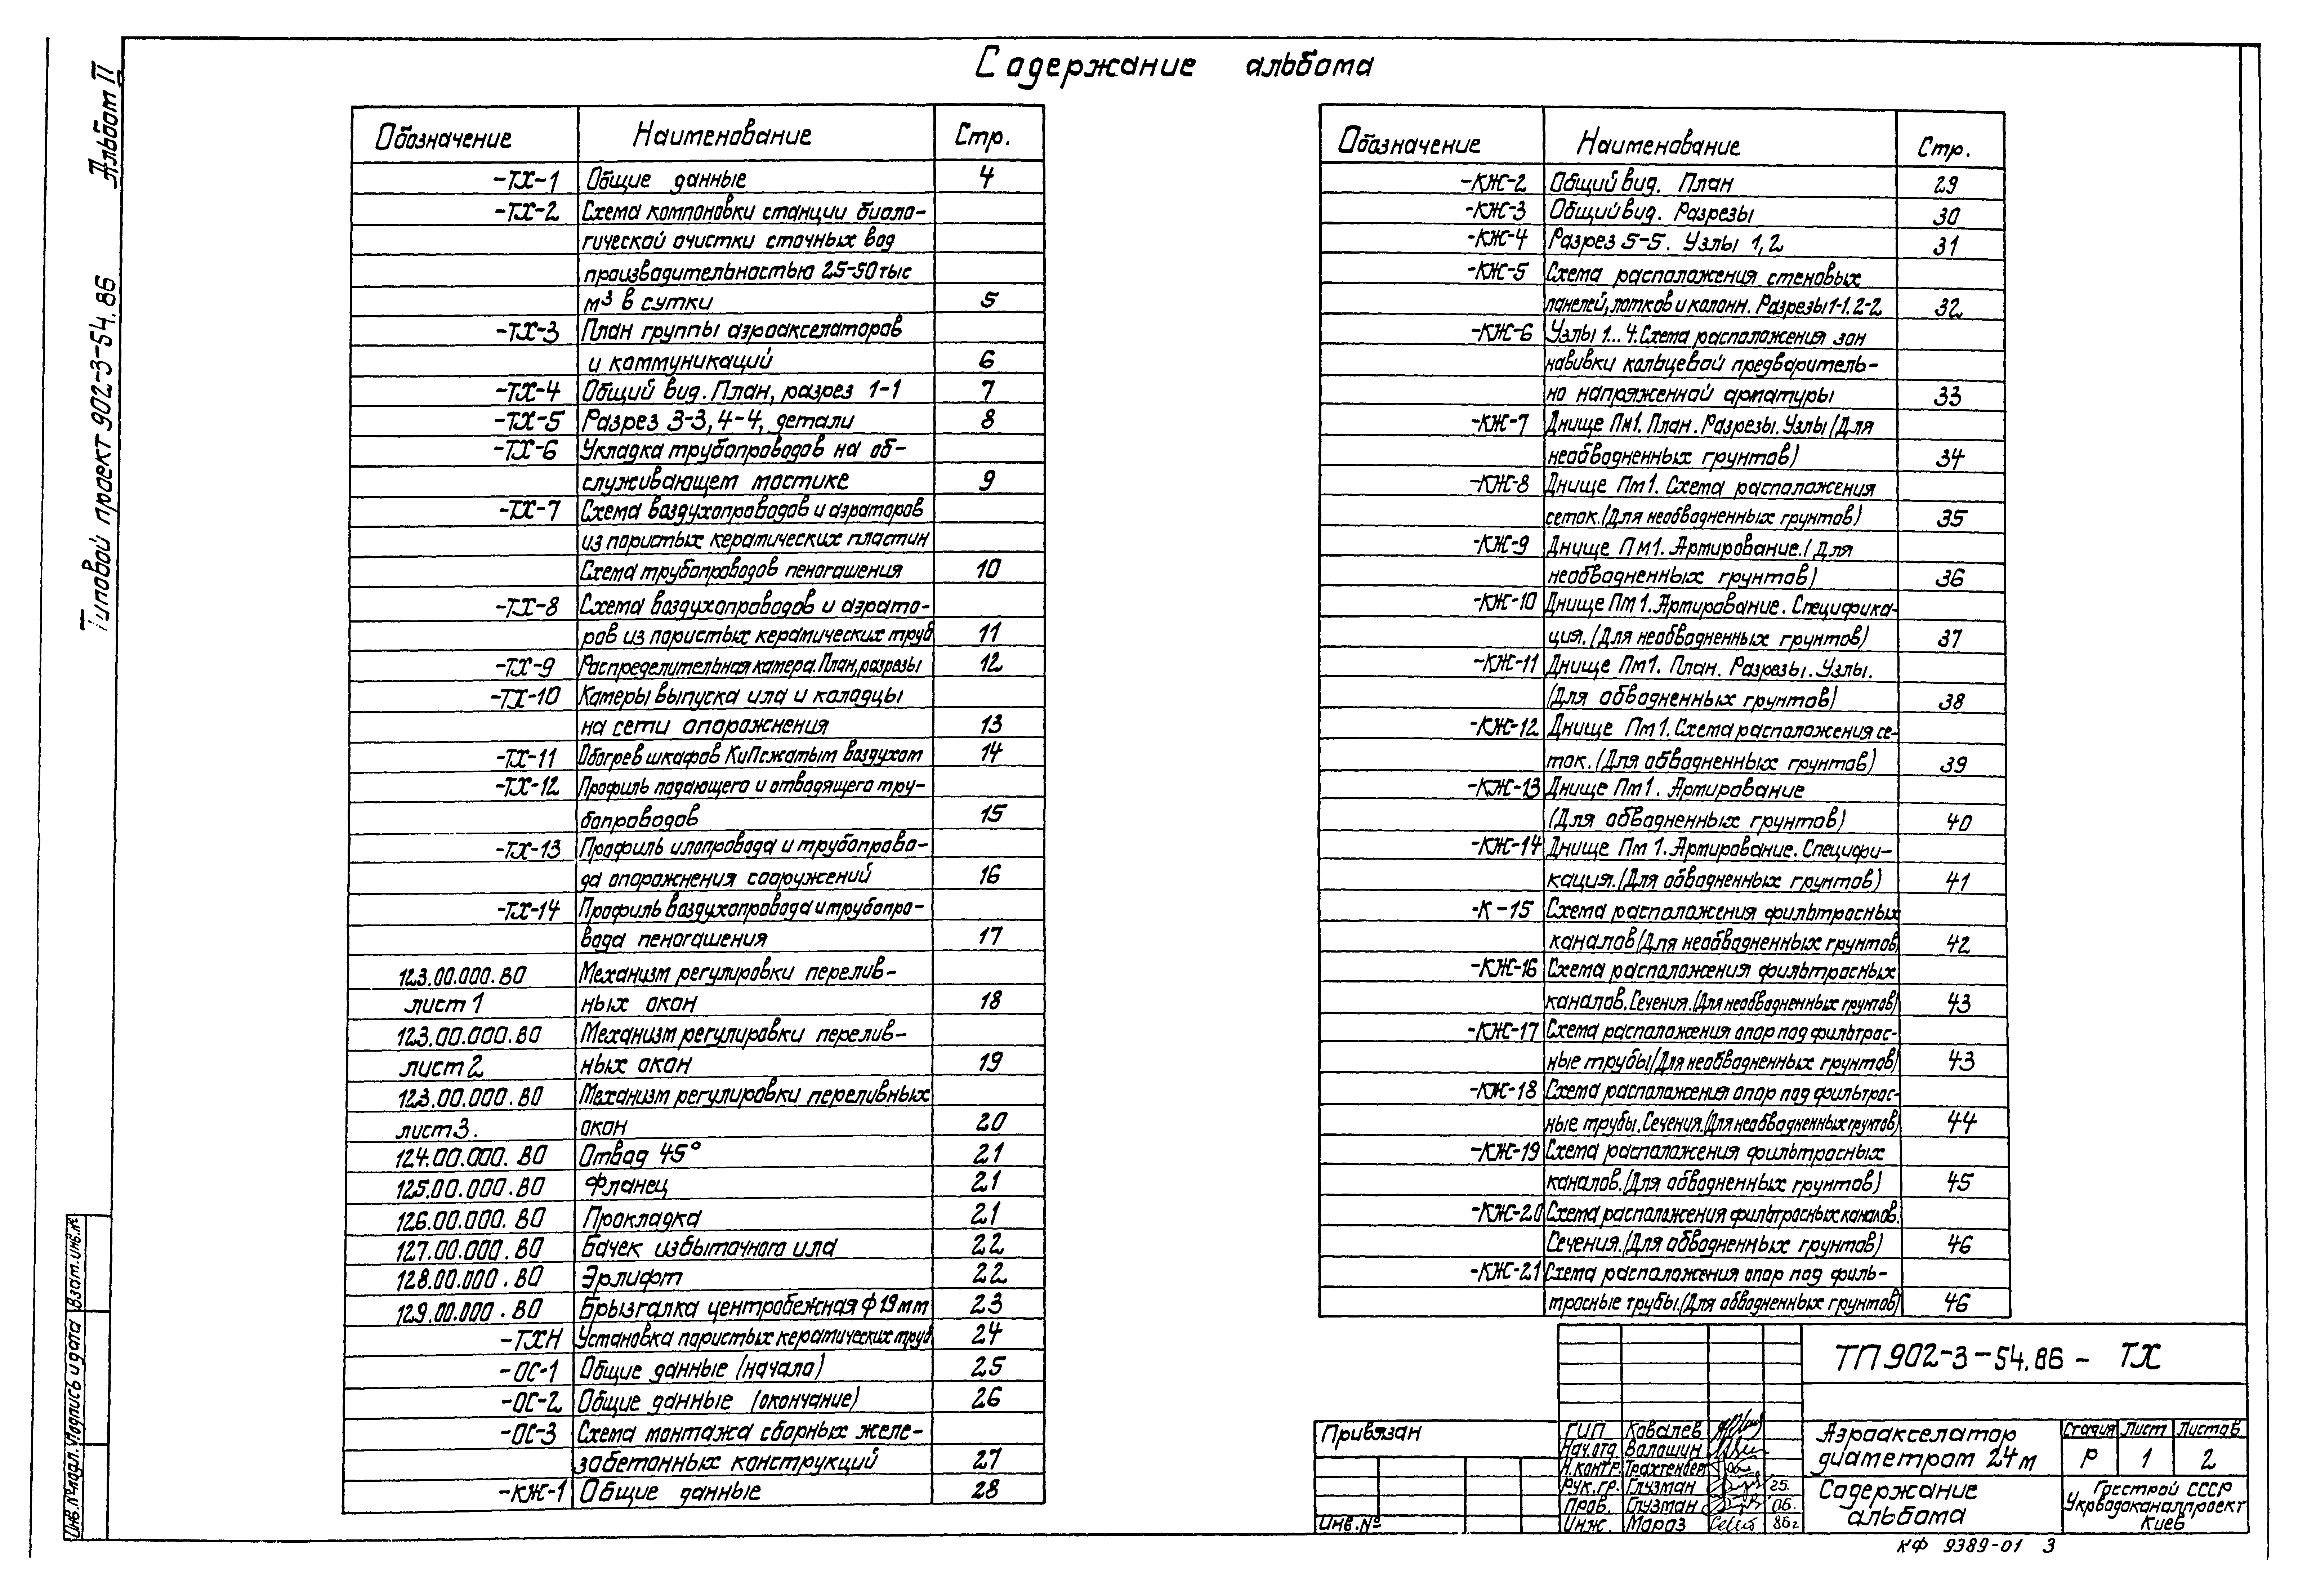 Содержание альбома
Альбом II
Типовой проект 902-3-54.86
Обозначение Наименование Стр.
-ТХ-1 Общие данные 4
-ТХ-2 Схема компоновки станции биоло-
гической очистки сточных вод
производительностью 25-50 тыс
м³ в сутки 5
-ТХ-3 План группы аэроакселаторов
и коммуникаций 6
-ТХ-4 Общий вид. План, разрез 1-1 7
-ТХ-5 Разрез 3-3, 4-4, детали 8
-ТХ-6 Укладка трубопроводов на об-
служивающем мостике 9
-ТХ-7 Схема воздухопроводов и аэраторов
из пористых керамических пластин
Схема трубопроводов пеногашения 10
-ТХ-8 Схема воздухопроводов и аэрато-
ров из пористых керамических труб 11
-ТХ-9 Распределительная камера. План, разрезы 12
-ТХ-10 Камеры выпуска ила и колодцы
на сети опорожнения 13
-ТХ-11 Обогрев шкафов КиП сжатым воздухом 14
-ТХ-12 Профиль подающего и отводящего тру-
бопроводов 15
-ТХ-13 Профиль илопровода и трубопрово-
да опорожнения сооружений 16
-ТХ-14 Профиль воздухопровода и трубопро-
вода пеногашения 17
123.00.000.ВО Механизм регулировки перелив-
лист 1 ных окон 18
123.00.000.ВО Механизм регулировки перелив-
лист 2 ных окон 19
123.00.000.ВО Механизм регулировки переливных
лист 3. окон 20
124.00.000.ВО Отвод 45° 21
125.00.000.ВО Фланец 21
126.00.000.ВО Прокладка 21
127.00.000.ВО Бачек избыточного ила 22
128.00.000.ВО Эрлифт 22
129.00.000.ВО Брызгалка центробежная ф 19 мм 23
-ТХН Установка пористых керамических труб 24
-ОС-1 Общие данные (начало) 25
-ОС-2 Общие данные (окончание) 26
-ОС-3 Схема монтажа сборных желе-
забетонных конструкций 27
-КЖ-1 Общие данные 28
Обозначение Наименование Стр.
-КЖ-2 Общий вид. План 29
-КЖ-3 Общий вид. Разрезы 30
-КЖ-4 Разрез 5-5. Узлы 1, 2 31
-КЖ-5 Схема расположения стеновых
панелей, лотков и колонн. Разрезы 1-1. 2-2 32
-КЖ-6 Узлы 1... 4. Схема расположения зон
навивки кольцевой предваритель-
но напряженной арматуры 33
-КЖ-7 Днище Пм1. План. Разрезы. Узлы (Для
необводненных грунтов) 34
-КЖ-8 Днище Пм1. Схема расположения
сеток. (Для необводненных грунтов) 35
-КЖ-9 Днище Пм1. Армирование. (Для
необводненных грунтов) 36
-КЖ-10 Днище Пм1. Армирование. Специфика-
ция. (Для необводненных грунтов) 37
-КЖ-11 Днище Пм1. План. Разрезы. Узлы.
(Для обводненных грунтов) 38
-КЖ-12 Днище Пм1. Схема расположения се-
ток. (Для обводненных грунтов) 39
-КЖ-13 Днище Пм1. Армирование
(Для обводненных грунтов) 40
-КЖ-14 Днище Пм1. Армирование. Специфи-
кация. (Для обводненных грунтов) 41
-К -15 Схема расположения фильтросных
каналов (Для необводненных грунтов) 42
-КЖ-16 Схема расположения фильтросных
каналов. Сечения. (Для необводненных грунтов) 43
-КЖ-17 Схема расположения опор под фильтрос-
ные трубы (Для необводненных грунтов) 43
-КЖ-18 Схема расположения опор под фильтрос-
ные трубы. Сечения. (Для необводненных грунтов) 44
-КЖ-19 Схема расположения фильтросных
каналов. (Для обводненных грунтов) 45
-КЖ-20 Схема расположения фильтросных каналов.
Сечения. (Для обводненных грунтов) 46
-КЖ-21 Схема расположения опор под филь-
тросные трубы. (Для обводненных грунтов) 46
ТП 902-3-54.86 - ТХ
Привязан
Инв. №
ГИП Ковалев
Нач.отд. Волошин
Н.контр. Трахтенберг
Рук.гр. Глузман 25.
Пров. Глузман 06.
Инж. Мороз 86г
Аэроакселатор
диаметром 24 м
Стадия Лист Листов
Р 1 2
Содержание
альбома
Госстрой СССР
Укрводоканалпроект
Киев
КФ 9389-01 3
Инв. № подл. Подпись и дата Взам. инв. №